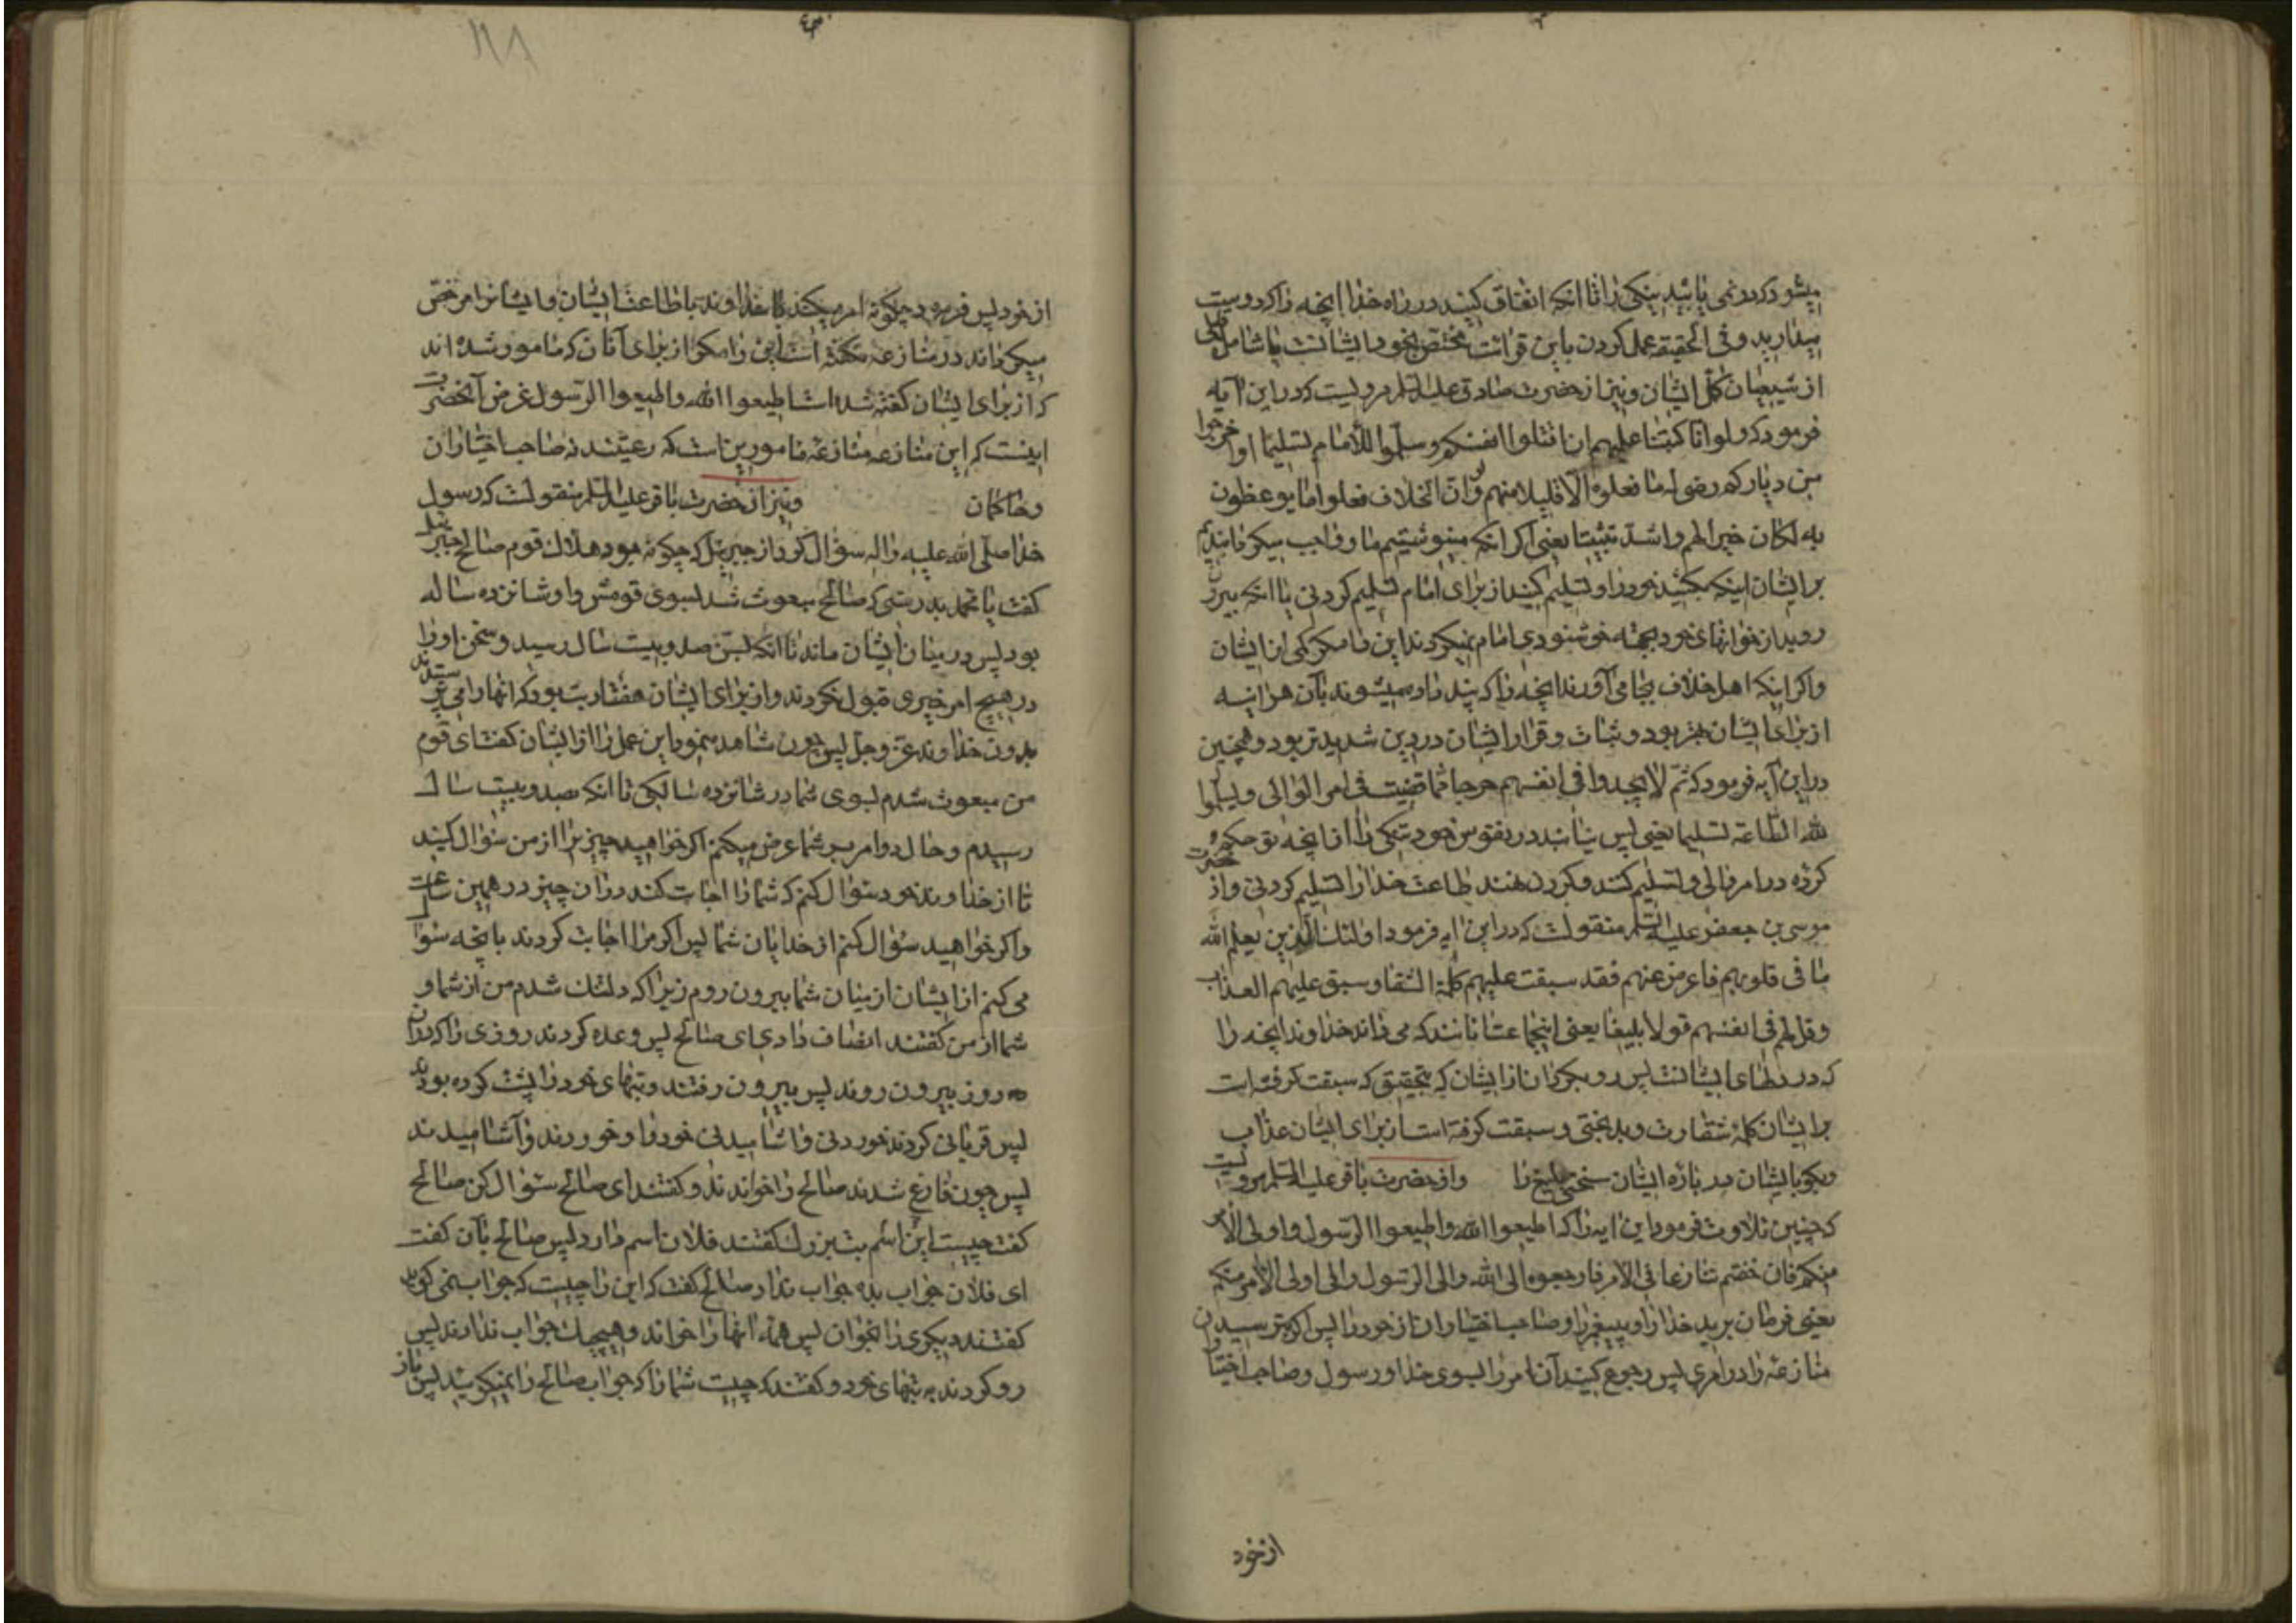 میشود که در نمی یابید نیکی را تا آنکه انفاق کنید در راه خدا آنچه را که دوست
میدارید و فی الحقیقه عمل کردن باین قرائت مختص بخود ایشانست یا شامل
از شیعیان کمّل ایشان و نیز از حضرت صادق علیه السلم مرویست که در این آیه
فرمود که ولو انا کتبنا علیهم ان اقتلوا انفسکم وسلّموا للأمام تسلیما او اخرجوا
من دیارکم رضی له ما فعلوه الا قلیلا منهم ولو ان اهل الخلاف فعلوا ما یوعظون
به لکان خیرا لهم واشدّ تثبیتا یعنی اکر آنکه مینوشتیم ما و واجب میکردانیدیم
بر ایشان اینکه بکشید خود را و تسلیم کنید از برای امام تسلیم کردنی یا آنکه بیرون
روید از خوانهای خود بجهته خوشنودی امام نمیکردند این را مکر کمی از ایشان
و اکر اینکه اهل خلاف بجا می آورند آنچه را که پند داده میشوند بآن هر اینه
از برای ایشان بهتر بود و ثبات و قرار ایشان در دین شدیدتر بود و همچنین
در این آیه فرمود که ثمّ لا یجدوا فی انفسهم حرجا ممّا قضیت فی امر الوالی و یسلّموا
لله الطّاعة تسلیما یعنی پس نیابند در نفوس خود تنکی را از آنچه تو حکم
کرده در امر والی و تسلیم کنند و کردن نهند طاعت خدا را تسلیم کردنی و از حضرت
موسی بن جعفر علیه السّلم منقولست که در این آیه فرمود اولئک الّذین یعلم الله
ما فی قلوبهم فاعرض عنهم فقد سبقت علیهم کلمة الشقاء و سبق علیهم العذاب
وقل لهم فی انفسهم قولا بلیغا یعنی اینجماعت آنانند که می داند خداوند آنچه را
که در دلهای ایشانست پس رو بکردان از ایشان که بتحقیق که سبقت کرفته است
بر ایشان کلمهٔ شقاوت و بدبختی و سبقت کرفته است از برای ایشان عذاب
و بکو بایشان در بارهٔ ایشان سخنی بلیغ را و از حضرت باقر علیه السّلم مرویست
که چنین تلاوت فرمود این آیه را که اطیعوا الله واطیعوا الرّسول واولی الأمر
منکم فان خفتم تنازعا فی الأمر فارجعوه الی الله والی الرّسول والی اولی الأمر منکم
یعنی فرمان برید خدا را و پیغمبر را و صاحب اختیاران از خود را پس اکر بترسید از
منازعه را در امری پس رجوع کنید آن امر را بسوی خدا و رسول و صاحب اختیاران
از خود
از خود پس فرمود چکونه امر میکند خداوند باطاعت ایشان و ایشانرا مرخّص
میکرداند در منازعه نکفته است این را مکر از برای آنان که مامور شده اند
که از برای ایشان کفته شده است اطیعوا الله واطیعوا الرّسول غرض آنحضرت
اینست که این منازعه منازعهٔ مامورین است که رعیتند نه صاحب اختیاران
و حاکمان و نیز از حضرت باقر علیه السّلم منقولست که رسول
خدا صلّی الله علیه واله سؤال کرد از جبرئیل که چکونه بود هلاک قوم صالح جبرئیل
کفت یا محمد بدرستی که صالح مبعوث شد بسوی قومش و او شانزده ساله
بود پس در میان ایشان ماند تا آنکه بسنّ صد و بیست سال رسید و سخن او را
در هیچ امر خیری قبول نکردند و از برای ایشان هفتاد بت بود که آنها را می پرستیدند
بدون خداوند عزّ وجلّ پس چون شاهد نمود این عمل را از ایشان کفت ای قوم
من مبعوث شدم بسوی شما در شانزده سالکی تا آنکه بصد و بیست سال
رسیدم و حال دو امر بر شما عرض میکنم اکر خواهید چیز برا از من سؤال کنید
تا از خداوند خود سؤال کنم که شما را اجابت کند در آن چیز در همین ساعت
و اکر خواهید سؤال کنم از خدایان شما پس اکر مرا اجابت کردند بآنچه سؤال
می کنم از ایشان از میان شما بیرون روم زیرا که دلتنک شدم من از شما و
شما از من کفتند انصاف دادی ای صالح پس وعده کردند روزی را که در آن
روز بیرون روند پس بیرون رفتند و بتهای خود را پشت کرده بودند
پس قربانی کردند خوردنی و آشامیدنی خود را و خوردند و آشامیدند
پس چون فارغ شدند صالح را خواندند و کفتند ای صالح سؤال کن صالح
کفت چیست این اسم بت بزرک کفتند فلان اسم دارد پس صالح بآن کفت
ای فلان جواب بده جواب نداد صالح کفت که این را چیست که جواب نمی کوید
کفتند دیکری را بخوان پس همهٔ آنها را خواند و هیچیک جواب ندادند پس
رو کردند به بتهای خود و کفتند که چیست شما را که جواب صالح را نمیکوئید پس باز